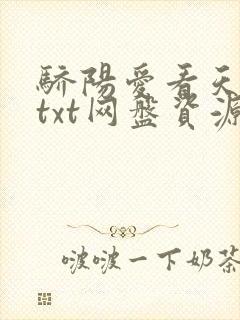 驕陽愛看天
txt网盤資源
啵啵一下奶茶